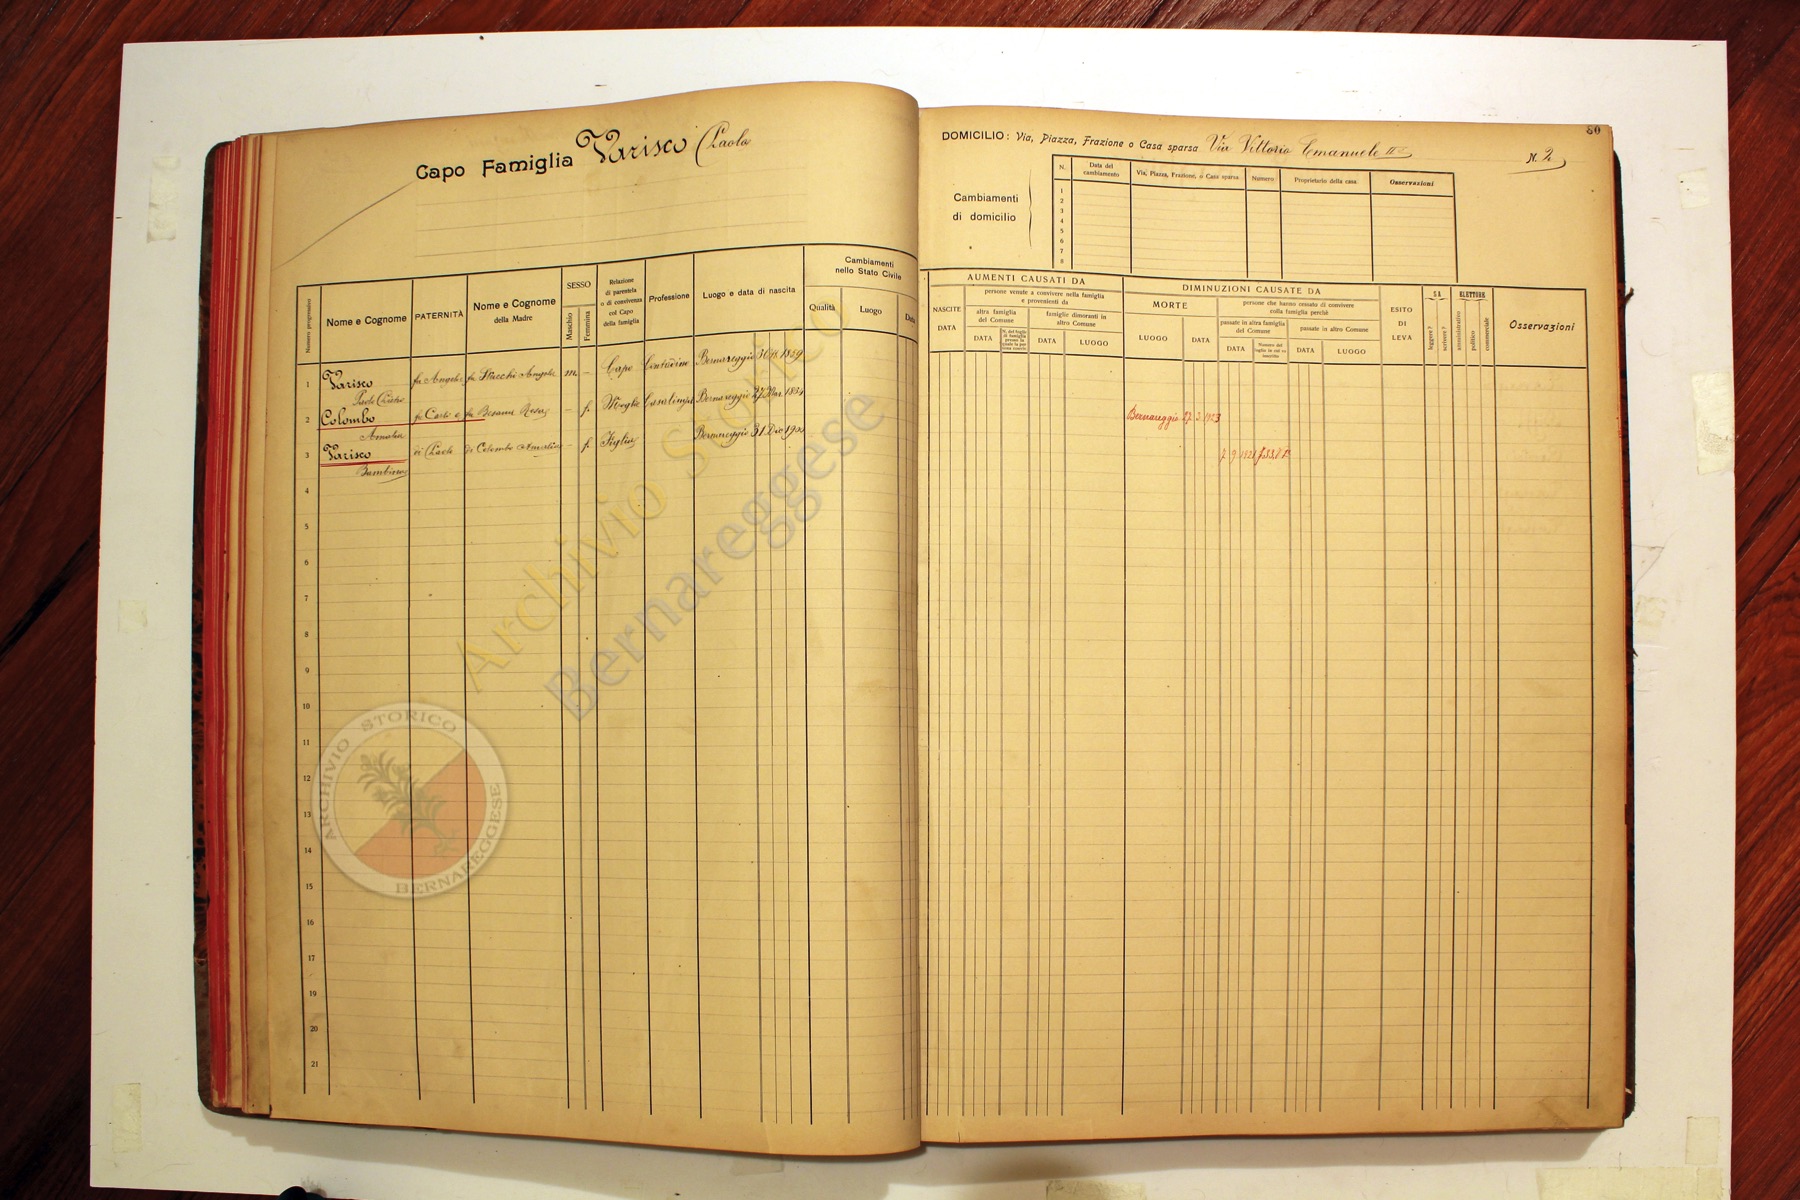 Capo Famiglia Varisco Paolo
Numero progressivo
Nome e Cognome
PATERNITÀ
Nome e Cognome
della Madre
SESSO
Maschio
Femmina
Relazione
di parentela
o di convivenza
col Capo
della famiglia
Professione
Luogo e data di nascita
Cambiamenti
nello Stato Civile
Qualità
Luogo
Data
1 Varisco fu Angelo fu Stucchi Angela m. – Capo Contadino Bernareggio 1859
Paolo
2 Colombo fu Carlo e fu Besana Rosa – f. Moglie Casalinga Bernareggio 27 Mar. 1864
Amalia
3 Varisco di Paolo di Colombo Amalia – f. Figlia Bernareggio 31 Dic 1900
Bambina
4
5
6
7
8
9
10
11
12
13
14
15
16
17
18
19
20
21
80
DOMICILIO: Via, Piazza, Frazione o Casa sparsa Via Vittorio Emanuele II
N. 2
Cambiamenti
di domicilio
N.
Data del
cambiamento
Via, Piazza, Frazione, o Casa sparsa
Numero
Proprietario della casa
Osservazioni
1
2
3
4
5
6
7
8
AUMENTI CAUSATI DA
NASCITE
DATA
persone venute a convivere nella famiglia
e provenienti da
altra famiglia
del Comune
DATA
N. del foglio
di famiglia
presso la
quale la per-
sona convive
famiglie dimoranti in
altro Comune
DATA
LUOGO
DIMINUZIONI CAUSATE DA
MORTE
LUOGO
DATA
persone che hanno cessato di convivere
colla famiglia perchè
passate in altra famiglia
del Comune
DATA
Numero del
foglio in cui fu
inscritto
passate in altro Comune
DATA
LUOGO
ESITO
DI
LEVA
SA
leggere?
scrivere?
ELETTORE
amministrativo
politico
commerciale
Osservazioni
Bernareggio 27. 3. 1923
7. 9. 1921
Archivio Storico
Bernareggese
ARCHIVIO STORICO
BERNAREGGESE